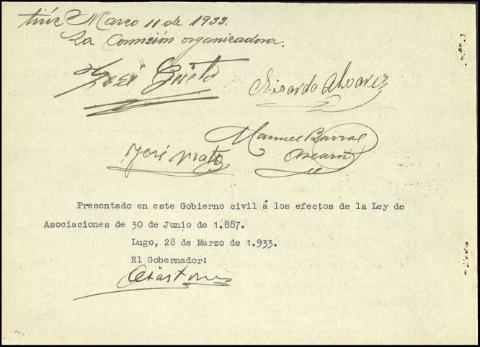 Marzo 11 de 1933.
La Comisión organizadora.
José
Ricardo Alvarez
Manuel Barral
José Prieto
Presentado en este Gobierno civil á los efectos de la Ley de
Asociaciones de 30 de Junio de 1.887.
Lugo, 28 de Marzo de 1.933.
El Gobernador: